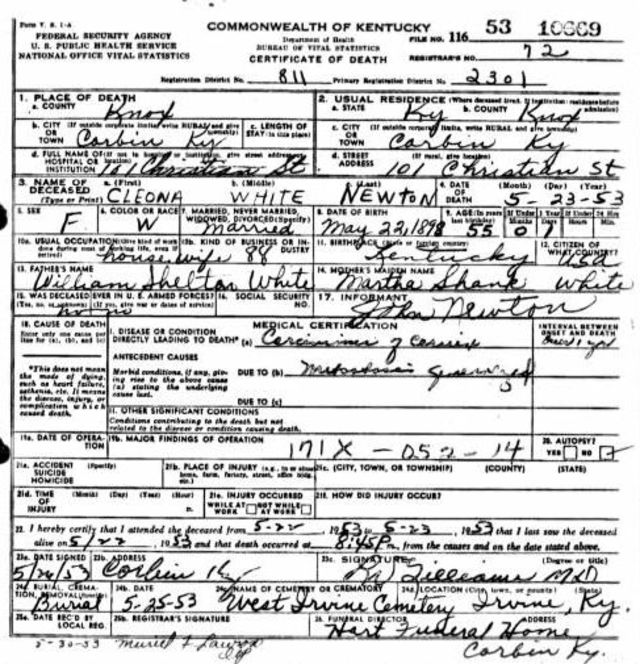 Form V. S. 1-A
COMMONWEALTH OF KENTUCKY
FEDERAL SECURITY AGENCY
U. S. PUBLIC HEALTH SERVICE
NATIONAL OFFICE VITAL STATISTICS
Department of Health
BUREAU OF VITAL STATISTICS
CERTIFICATE OF DEATH
FILE NO. 116 53 10669
REGISTRAR'S NO. 72
Registration District No. 811 Primary Registration District No. 2301
1. PLACE OF DEATH
a. COUNTY Knox
2. USUAL RESIDENCE (Where deceased lived. If institution: residence before admission)
a. STATE Ky b. COUNTY Knox
b. CITY (If outside corporate limits, write RURAL and give township) OR TOWN Corbin Ky
c. LENGTH OF STAY (in this place)
c. CITY (If outside corporate limits, write RURAL and give township) OR TOWN Corbin Ky
d. FULL NAME OF (If not in hospital or institution, give street address) HOSPITAL OR INSTITUTION 101 Christian St
d. STREET ADDRESS (If rural, give location) 101 Christian St
3. NAME OF DECEASED (Type or Print) a. (First) CLEONA b. (Middle) WHITE c. (Last) NEWTON
4. DATE OF DEATH (Month) (Day) (Year) 5-23-53
5. SEX F
6. COLOR OR RACE W
7. MARRIED, NEVER MARRIED, WIDOWED, DIVORCED (Specify) married
8. DATE OF BIRTH May 22, 1898
9. AGE (In years last birthday) 55 If Under 1 Year Months 0 Days 1 If Under 24 Hrs. Hours Min.
10a. USUAL OCCUPATION (Give kind of work done during most of working life, even if retired) house wife
10b. KIND OF BUSINESS OR INDUSTRY 88
11. BIRTHPLACE (State or foreign country) Kentucky
12. CITIZEN OF WHAT COUNTRY? USA
13. FATHER'S NAME William Shelton White
14. MOTHER'S MAIDEN NAME Martha Shank White
15. WAS DECEASED EVER IN U. S. ARMED FORCES? (Yes, no, or unknown) (If yes, give war or dates of service)
16. SOCIAL SECURITY NO.
17. INFORMANT John Newton
18. CAUSE OF DEATH
Enter only one cause per line for (a), (b), and (c)
MEDICAL CERTIFICATION
INTERVAL BETWEEN ONSET AND DEATH
I. DISEASE OR CONDITION DIRECTLY LEADING TO DEATH* (a) Carcinoma of Cervix
over 1 yr
*This does not mean the mode of dying, such as heart failure, asthenia, etc. It means the disease, injury, or complication which caused death.
ANTECEDENT CAUSES
Morbid conditions, if any, giving rise to the above cause (a) stating the underlying cause last.
DUE TO (b) Metastasis Generalized
DUE TO (c)
II. OTHER SIGNIFICANT CONDITIONS
Conditions contributing to the death but not related to the disease or condition causing death.
19a. DATE OF OPERATION
19b. MAJOR FINDINGS OF OPERATION
171X - 052 - 14
20. AUTOPSY? YES NO
21a. ACCIDENT SUICIDE HOMICIDE (Specify)
21b. PLACE OF INJURY (e.g., in or about home, farm, factory, street, office bldg., etc.)
21c. (CITY, TOWN, OR TOWNSHIP) (COUNTY) (STATE)
21d. TIME OF INJURY (Month) (Day) (Year) (Hour)
21e. INJURY OCCURRED WHILE AT WORK NOT WHILE AT WORK
21f. HOW DID INJURY OCCUR?
22. I hereby certify that I attended the deceased from 5-22, 1953 to 5-23, 1953 that I last saw the deceased
alive on 5/22, 1953 and that death occurred at 8:45 P m., from the causes and on the date stated above.
23a. DATE SIGNED 5/26/53
23b. ADDRESS Corbin Ky
23c. SIGNATURE (Degree or title) Williams MD
24a. BURIAL, CREMATION, REMOVAL (Specify) Burial
24b. DATE 5-25-53
24c. NAME OF CEMETERY OR CREMATORY West Irvine Cemetery
24d. LOCATION (City, town, or county) (State) Irvine, Ky.
25a. DATE REC'D BY LOCAL REG. 5-30-53
25b. REGISTRAR'S SIGNATURE
26. FUNERAL DIRECTOR ADDRESS
Hart Funeral Home
Corbin Ky.